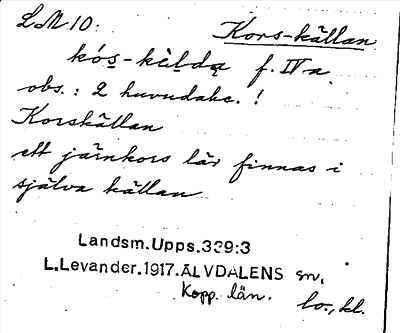 L.M.10. Kors-källan
kó̱s-kèlda f. IV a.
obs.: 2 huvudakc.!
Korskällan
ett järnkors lär finnas i
själva källan
Landsm.Upps.339:3
L.Levander.1917.ÄLVDALENS sn.
Kopp. län. lo., kl.